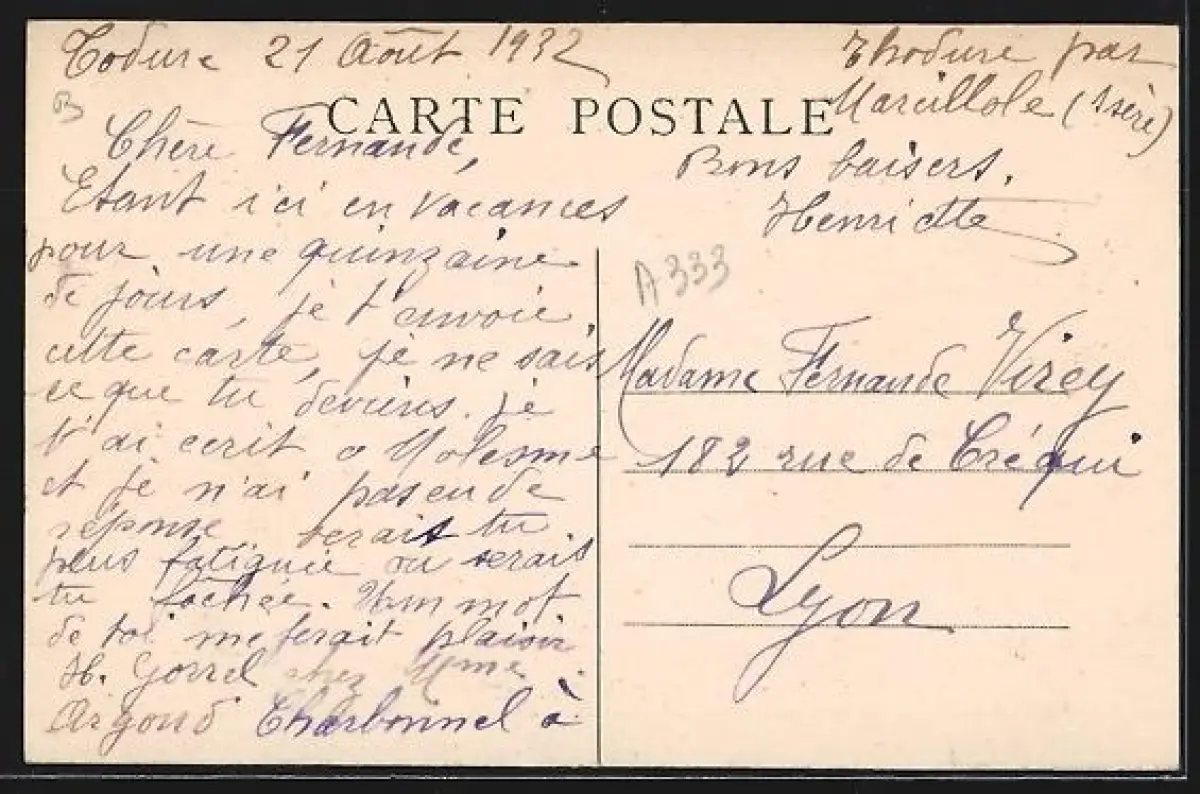 Todure 21 Août 1932
CARTE POSTALE
B
Chère Fernande,
Etant ici en vacances
pour une quinzaine
de jours, je t'envoie
cette carte, je ne sais
ce que tu deviens. je
t'ai ecrit a Molesme
et je n'ai pas eu de
réponse serais tu
plus fatiguée ou serais
tu fâchée. Un mot
de toi me ferait plaisir
H. Gorrel chez Mme
Argoud Charbonnel à
Thodure par
Marcillole (Isère)
Bons baisers.
Henriette
A333
Madame Fernande Virey
182 rue de Créqui
Lyon